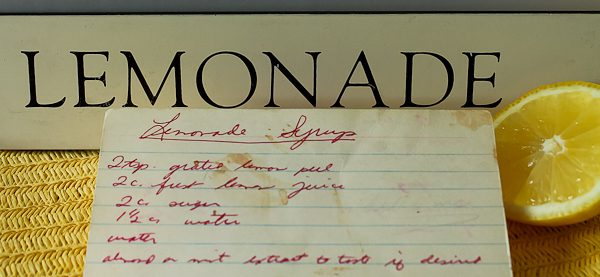 LEMONADE
Lemonade Syrup
2 tsp. grated lemon peel
2 c. fresh lemon juice
2 c. sugar
1½ c. water
water
almond or mint extract to taste if desired